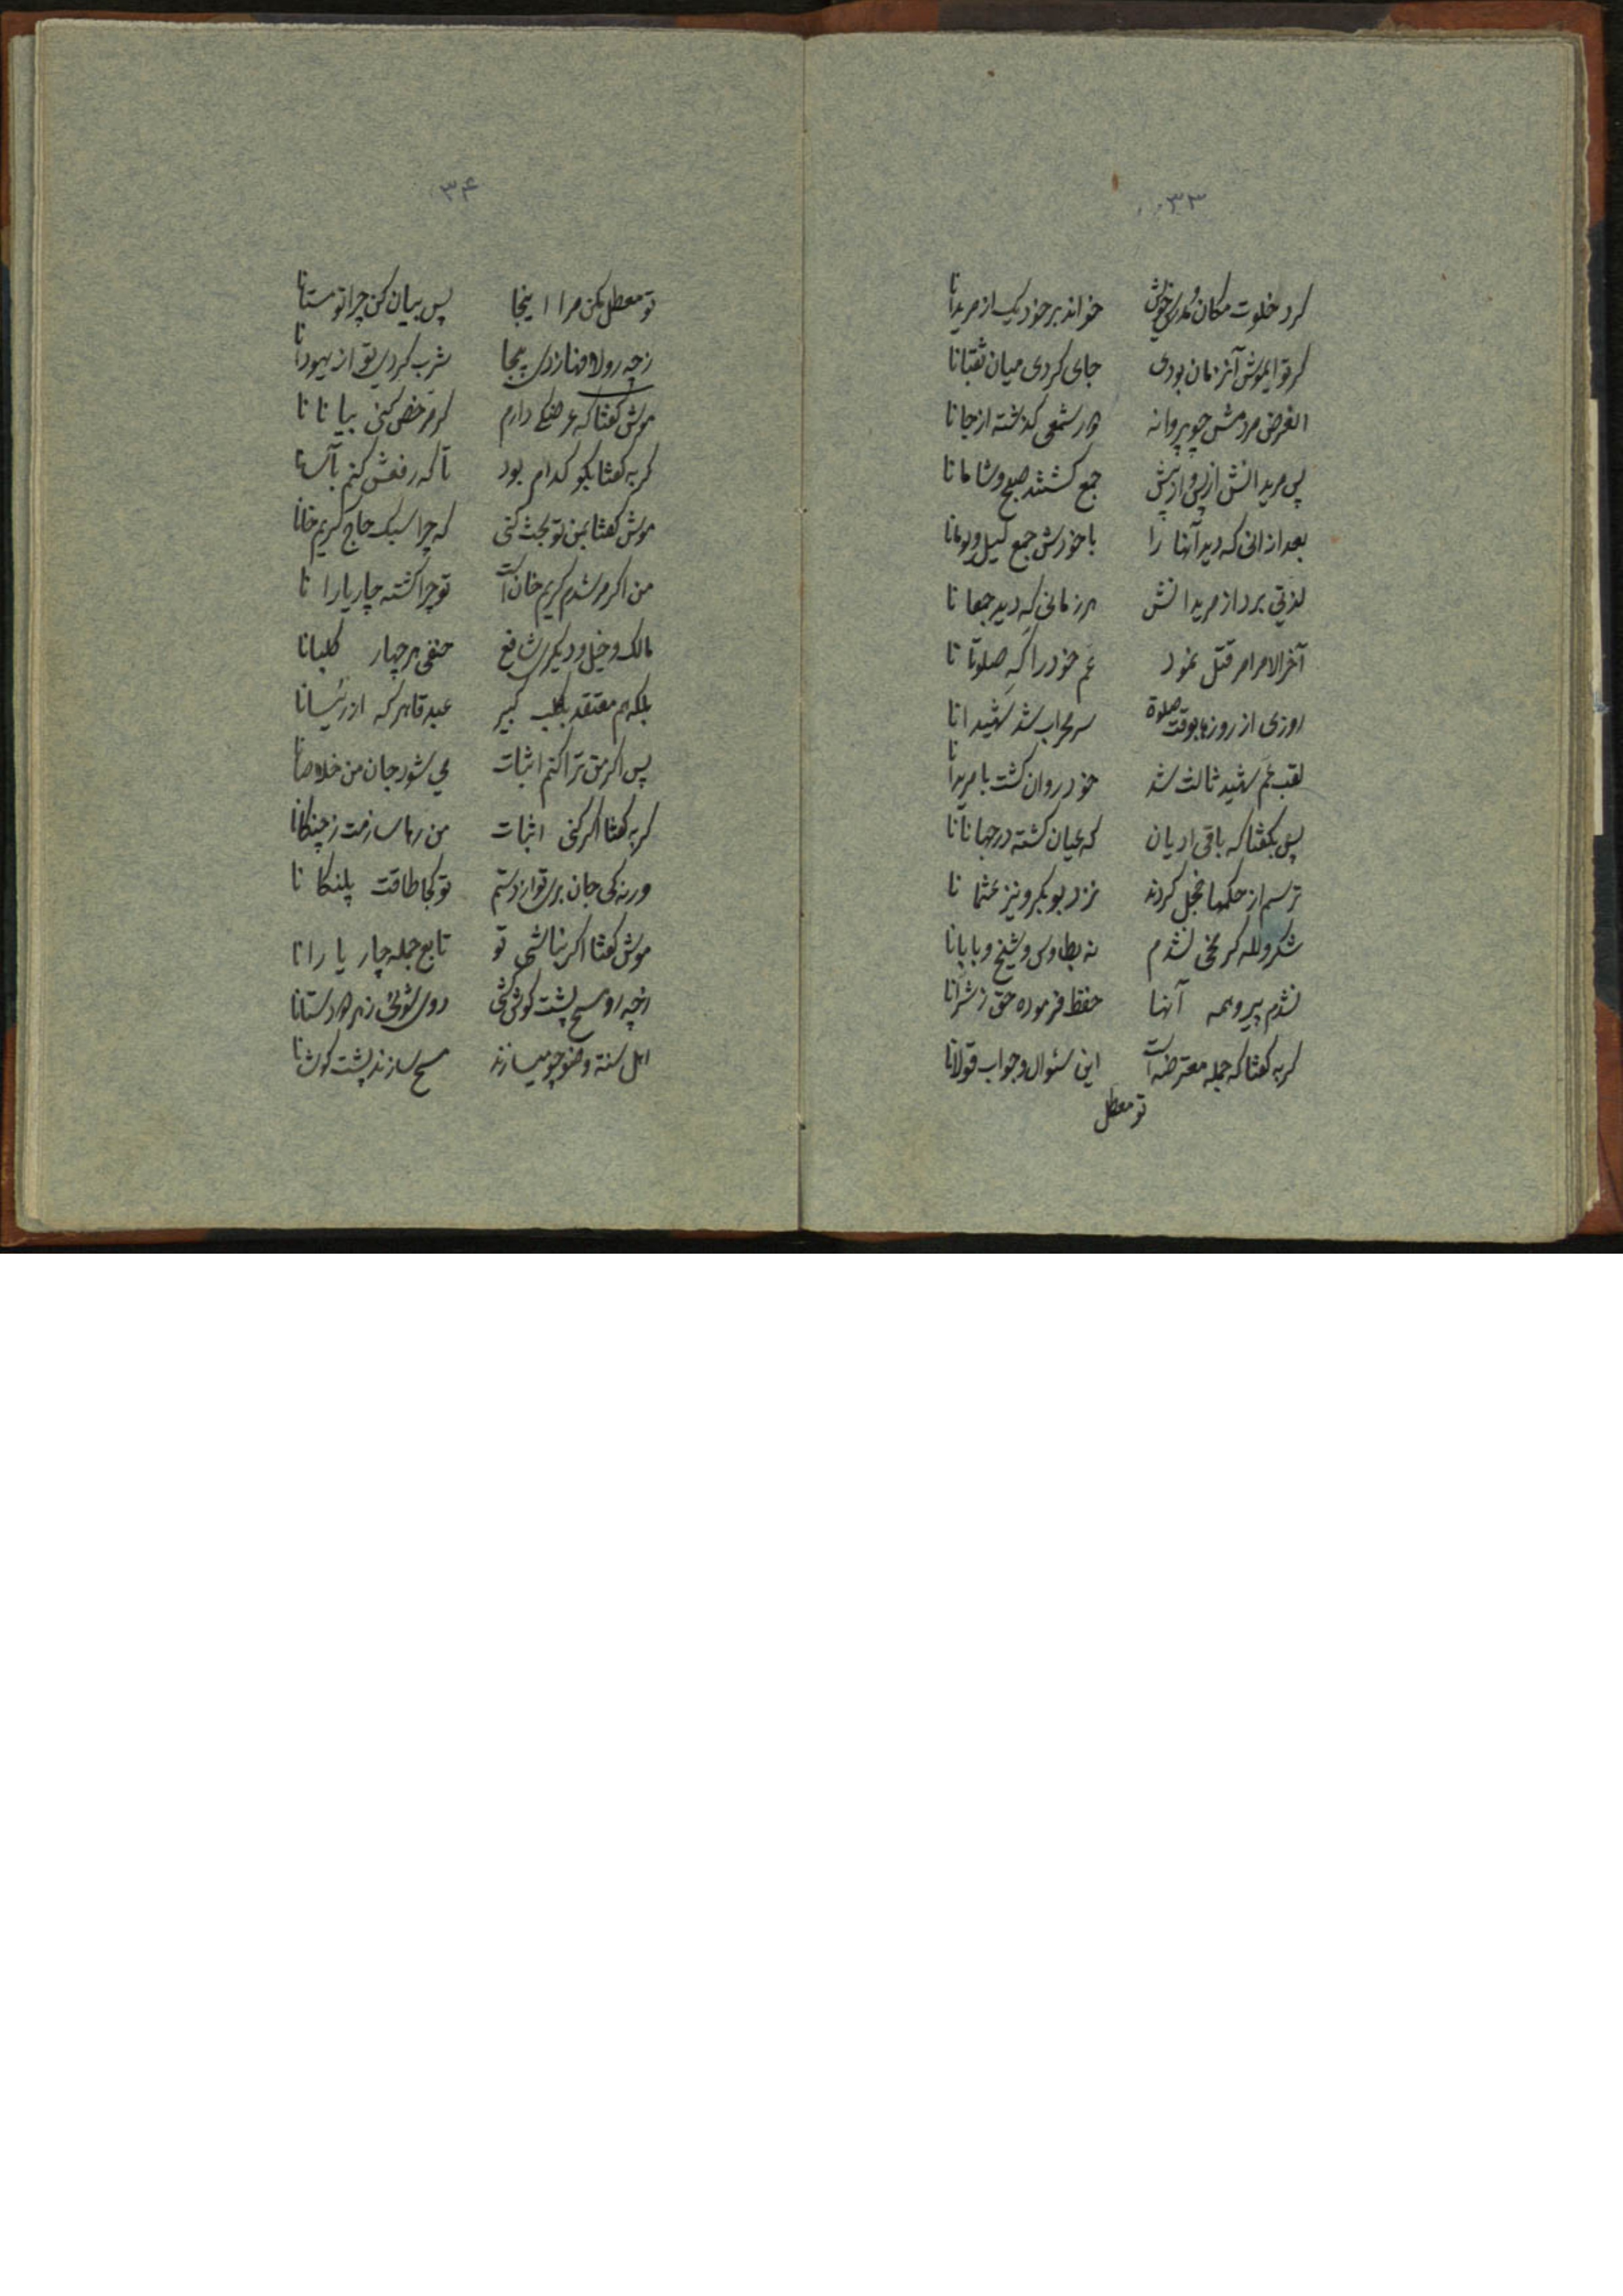 ۳۳
کرد خلوت مکان و مدرس خویش خواند بر خود یک از مریدانا
کر تو ایموش آنزمان بودی جای کردی میان ثقبانا
الغرض مردمش چو پروانه دور شمعی کذشته از جانا
پس مریدانش از پی و از پیش جمع کشتند صبح و شامانا
بعد از انی که دید آنها را با خودش جمع کیل و بومانا
لذتی برد از مریدانش هر زمانی که دید جمعانا
آخر الامر امر قتل نمود عم خود را که صلوتانا
روزی از روزها بوقت صلوة سر محراب شد شهیدانا
لقب عم شهید ثالث شد خود روان کشت با مریدانا
پس بکفتا که باقی ادیان که عیان کشته در جهانانا
ترسم از حکمها خجل کردند نزد بوبکر و نیز عثمانا
شکر ولله که نشدم نه بطاوس و شیخ و بابانا
نشدم پیرو همه آنها حفظ فرموده حق ز شرانا
کربه کفتا که جمله معترضه است این سئوال و جواب قولانا
تو معطل
۳۴
تو معطل مکن مرا اینجا پس بیان کن چرا تو مستانا
زچه رو لاف زدی بیجا شرب کردی تو از یهودانا
موش کفتا که عرضکی دارم کر مرخص کنی بیانانا
کربه کفتا بکو کدام بود تا که رفعش کنم بآسانا
موش کفتا بمن تو بحث کنی که چرا سبک حاج کریم خانا
من اکر مرشدم کریم خان است تو چرا کشته چار یارانا
مالک و حنبل و دیکر شافع حنفی هر چهار کلبانا
بلکه هم معتقد بکلب کبیر عبد قاهر که از رئیسانا
پس اکر من ترا کنم اثبات می شود جان من خلاصانا
کربه کفتا اکر کنی اثبات من رها سازمت ز چنکانا
ورنه کی جان بری تو از دستم تو کجا طاقت پلنکانا
موش کفتا اکر نباشی تو تابع جمله چار یارانا
زچه رو مسح پشت کوش کنی روی شوئی ز هر دو دستانا
اهل سنة وضو چو میسازند مسح سازند پشت کوشانا